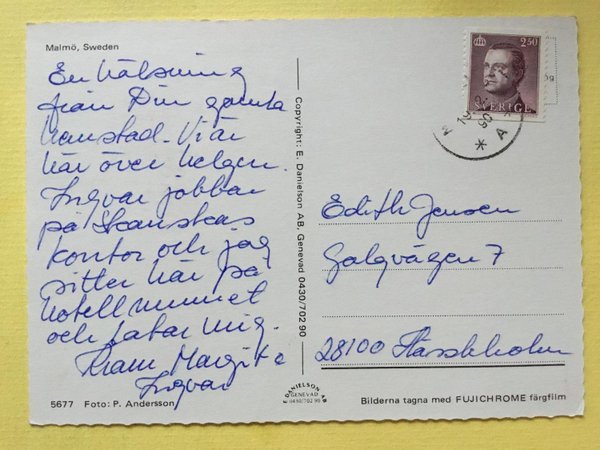 Malmö, Sweden
En hälsning
från Din gamla
hemstad. Vi är
här över helgen.
Ingvar jobbar
på Skanskas
kontor och jag
sitter här på
hotellrummet
och latar mig.
Kram Margita
Ingvar
5677 Foto: P. Andersson
Copyright: E. Danielson AB, Genevad 0430/702 90
E DANIELSON AB
GENEVAD
0430/702 90
2.50
SVERIGE
Edith Jensen
Galgvägen 7
28100 Hässleholm
Bilderna tagna med FUJICHROME färgfilm